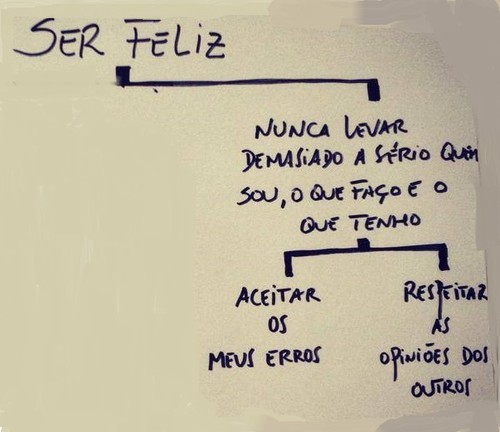 SER FELIZ
NUNCA LEVAR
DEMASIADO A SÉRIO QUEM
SOU, O QUE FAÇO E O
QUE TENHO
ACEITAR
OS
MEUS ERROS
RESPEITAR
AS
OPINIÕES DOS
OUTROS